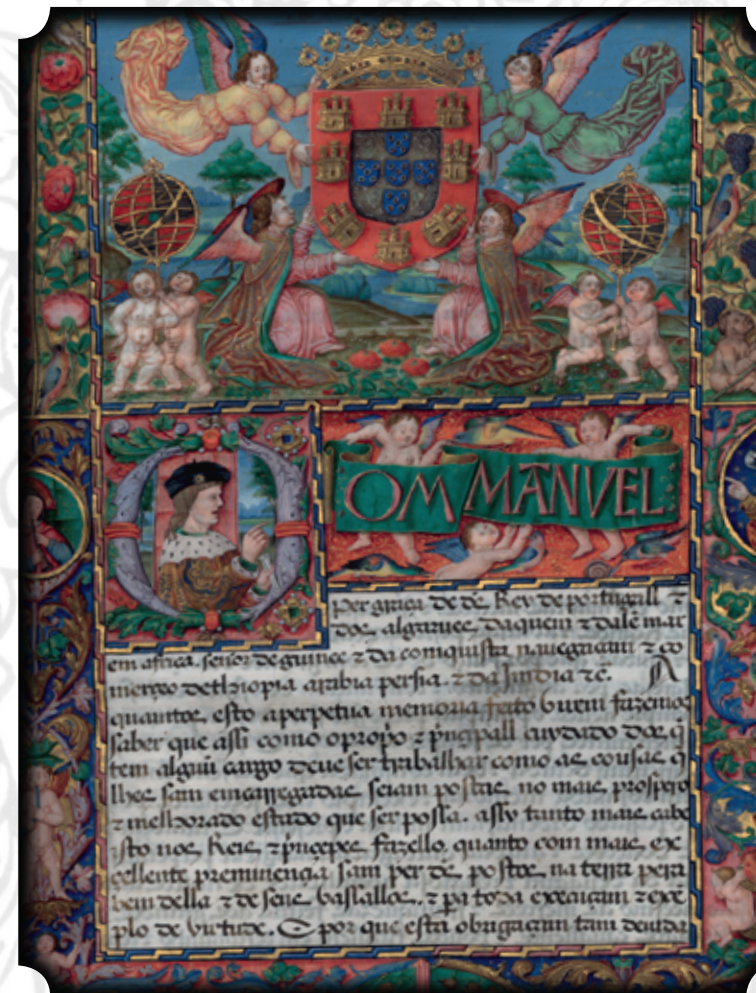 DOM MANVEL
per graça de ds̃. Rey de portugall ⁊
dos. algarues. daquem ⁊ dalẽ mar
em africa. señor de guinee ⁊ da comquista nauegaçam ⁊ co
merçio dethiopia arabia persia. ⁊ da Jmdia ⁊c̃. A
quamtos. esto aperpetua memoria feito virem fazemos
saber que assi como opropio ⁊ prĩcipall cuydado dos q̃
tem alguũ cargo deue ser trabalhar como as cousas q̃
lhes sam emcarregadas seiam postas no mais prospero
⁊ melhorado estado que ser possa. assy tanto mais cabe
isto nos Reis ⁊ prĩcepes fazello. quanto com mais exe
cellente preminençia sam per ds̃ postos na terra pera
bem della ⁊ de seus vassallos. ⁊ pa toda execuçam ⁊ exẽ
plo de virtude. E por que esta obrigaçam tam deuida